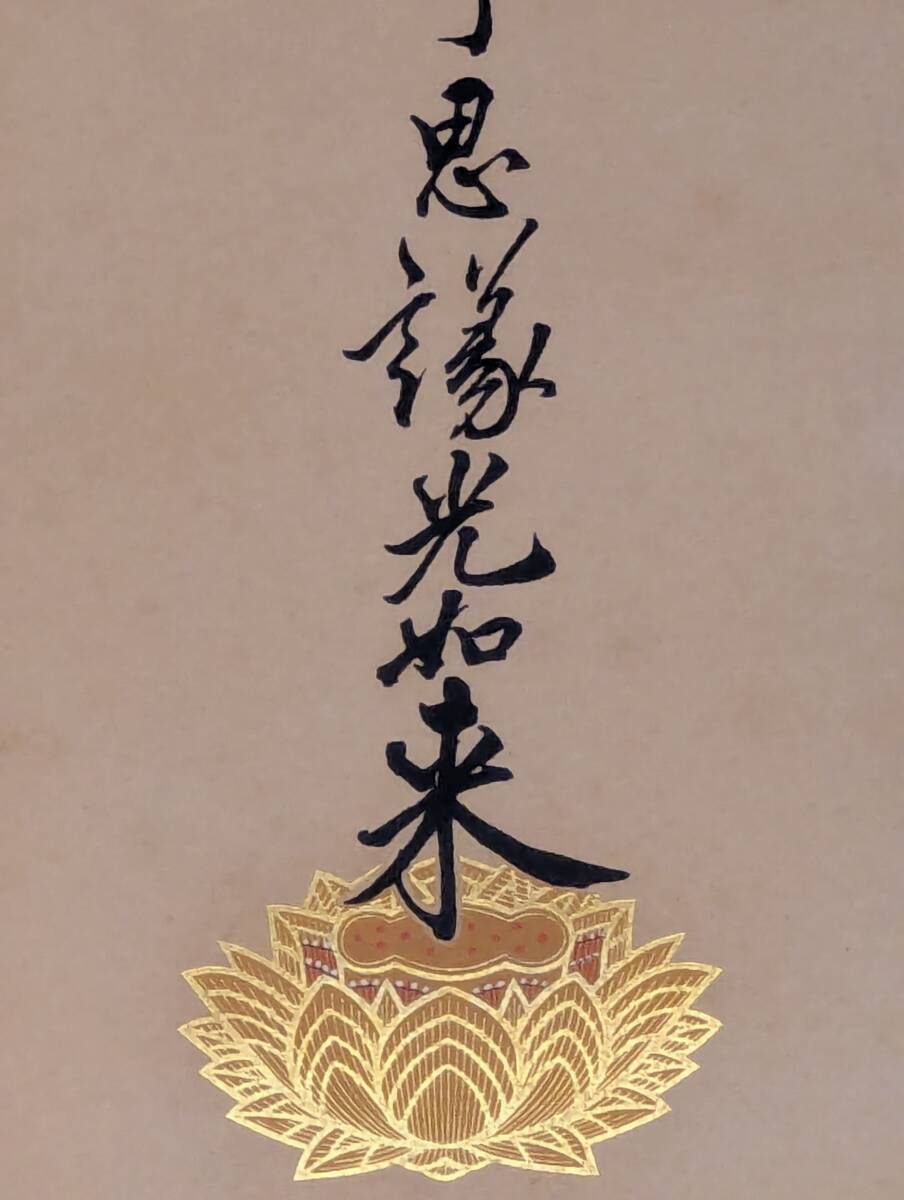 思議光如来